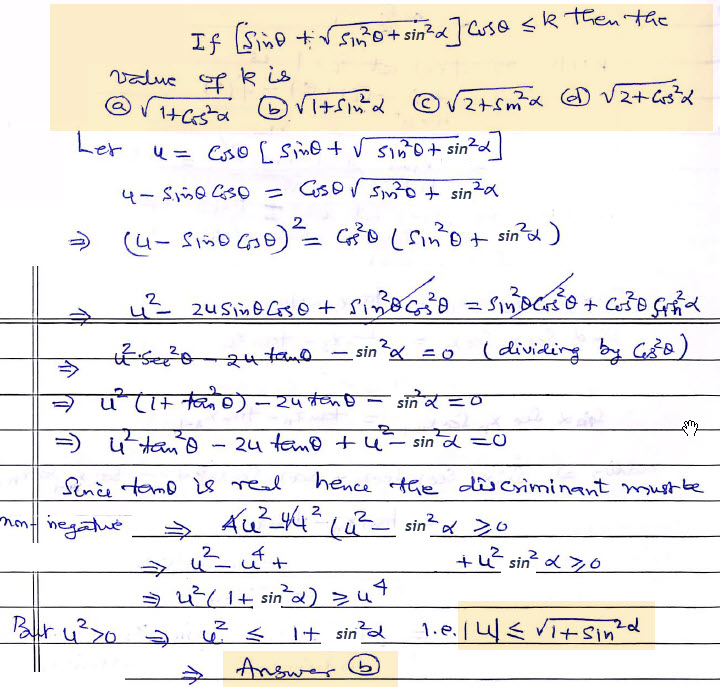 If [Sinθ + √(sin²θ + sin²α)] Cosθ ≤ k then the
value of k is
(a) √(1+Cos²α) (b) √(1+Sin²α) (c) √(2+Sin²α) (d) √(2+Cos²α)
Let u = Cosθ [Sinθ + √(Sin²θ + sin²α)]
u - Sinθ Cosθ = Cosθ √(Sin²θ + sin²α)
⇒ (u - Sinθ Cosθ)² = Cos²θ (Sin²θ + sin²α)
⇒ u² - 2u Sinθ Cosθ + Sin²θ Cos²θ = Sin²θ Cos²θ + Cos²θ Sin²α
⇒ u² Sec²θ - 2u tanθ - sin²α = 0 (dividing by Cos²θ)
⇒ u² (1 + tan²θ) - 2u tanθ - sin²α = 0
⇒ u² tan²θ - 2u tanθ + u² - sin²α = 0
Since tanθ is real hence the discriminant must be
non-negative ⇒ 4u² - 4u² (u² - sin²α ≥ 0
⇒ u² - u⁴ + + u² sin²α ≥ 0
⇒ u² (1 + sin²α) ≥ u⁴
But u² > 0 ⇒ u² ≤ 1 + sin²α i.e. |u| ≤ √(1 + Sin²α)
⇒ Answer (b)